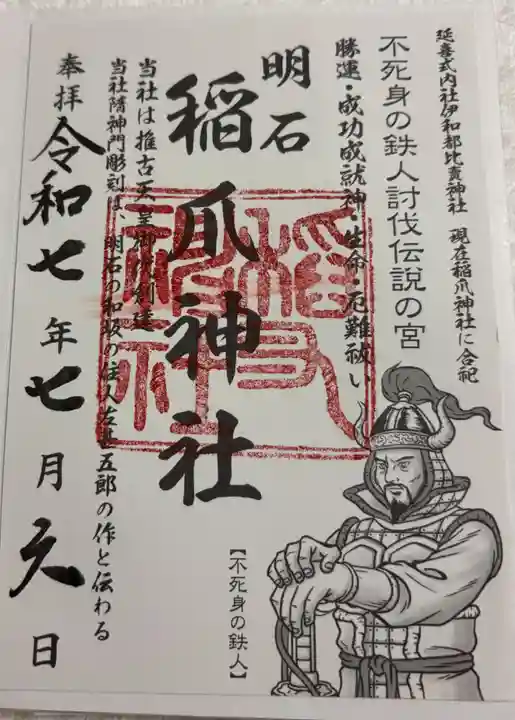 延喜式内社伊和都比賣神社 現在稲爪神社に合祀
不死身の鉄人討伐伝説の宮
勝運・成功成就神・生命・厄難祓い
明石
稲爪神社
当社は推古天皇御代創建
当社隋神門彫刻は、明石の和坂の住人左甚五郎の作と伝わる
奉拝
令和七年七月六日
【不死身の鉄人】